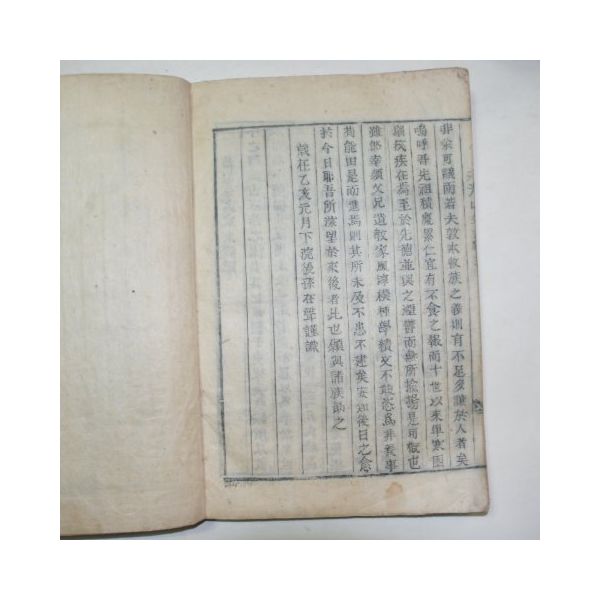 非余可議而若夫敦本敘族之義則有不足多讓於人者矣
嗚呼吾先祖積慶累仁宜有不食之報而十世以來單寒困
窮疾疾在焉至於先德並與之湮鬱而無所揄揚是可慨也
雖然幸須父兄遺敎家風淳樸種學績文不能恣爲非義事
苟能由是而進焉則其所未及不患不逮矣安知後日之愈
於今日耶吾所深望於來後者此也願與諸族勖之
歲在乙亥元月下浣後孫在聲謹識